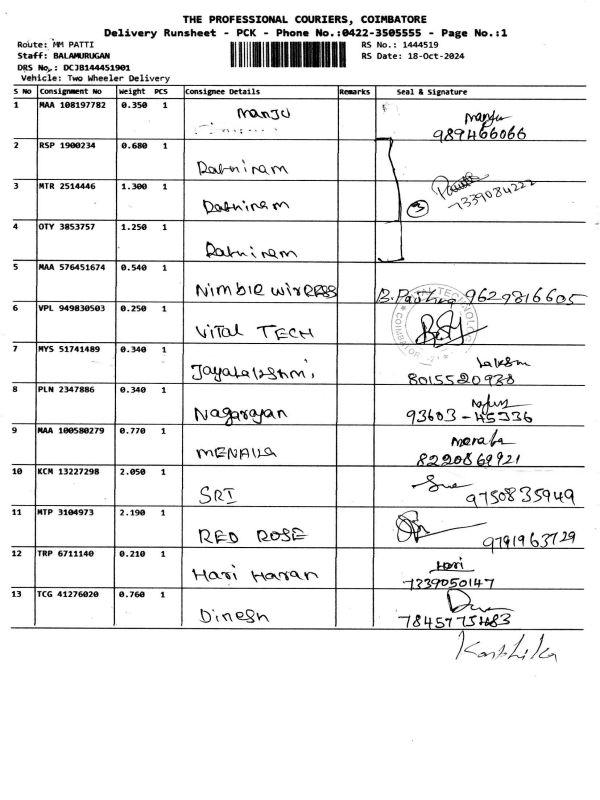 THE PROFESSIONAL COURIERS, COIMBATORE
Delivery Runsheet - PCK - Phone No.:0422-3505555 - Page No.:1
Route: MM PATTI RS No.: 1444519
Staff: BALAMURUGAN RS Date: 18-Oct-2024
DRS No.: DCJB144451901
Vehicle: Two Wheeler Delivery
S No Consignment No Weight PCS Consignee Details Remarks Seal & Signature
1 MAA 108197782 0.350 1 Manju Manju
989466066
2 RSP 1900234 0.680 1 Ratniram
3 MTR 2514446 1.300 1 Ratniram 3 7339084222
4 OTY 3853757 1.250 1 Ratniram
5 MAA 576451674 0.540 1 Nimble wireless 9629816605
6 VPL 949830503 0.250 1 VITAL TECH
7 MYS 51741489 0.340 1 Jayalakshmi
8015520938
8 PLN 2347886 0.340 1 Nagarajan
93603-45336
9 MAA 100580279 0.770 1
8220869921
10 KCM 13227298 2.050 1 SRI 9750835949
11 MTP 3104973 2.190 1 RED ROSE 9791963729
12 TRP 6711140 0.210 1 Hari Haran Hari
7339050147
13 TCG 41276020 0.760 1 Dinesh